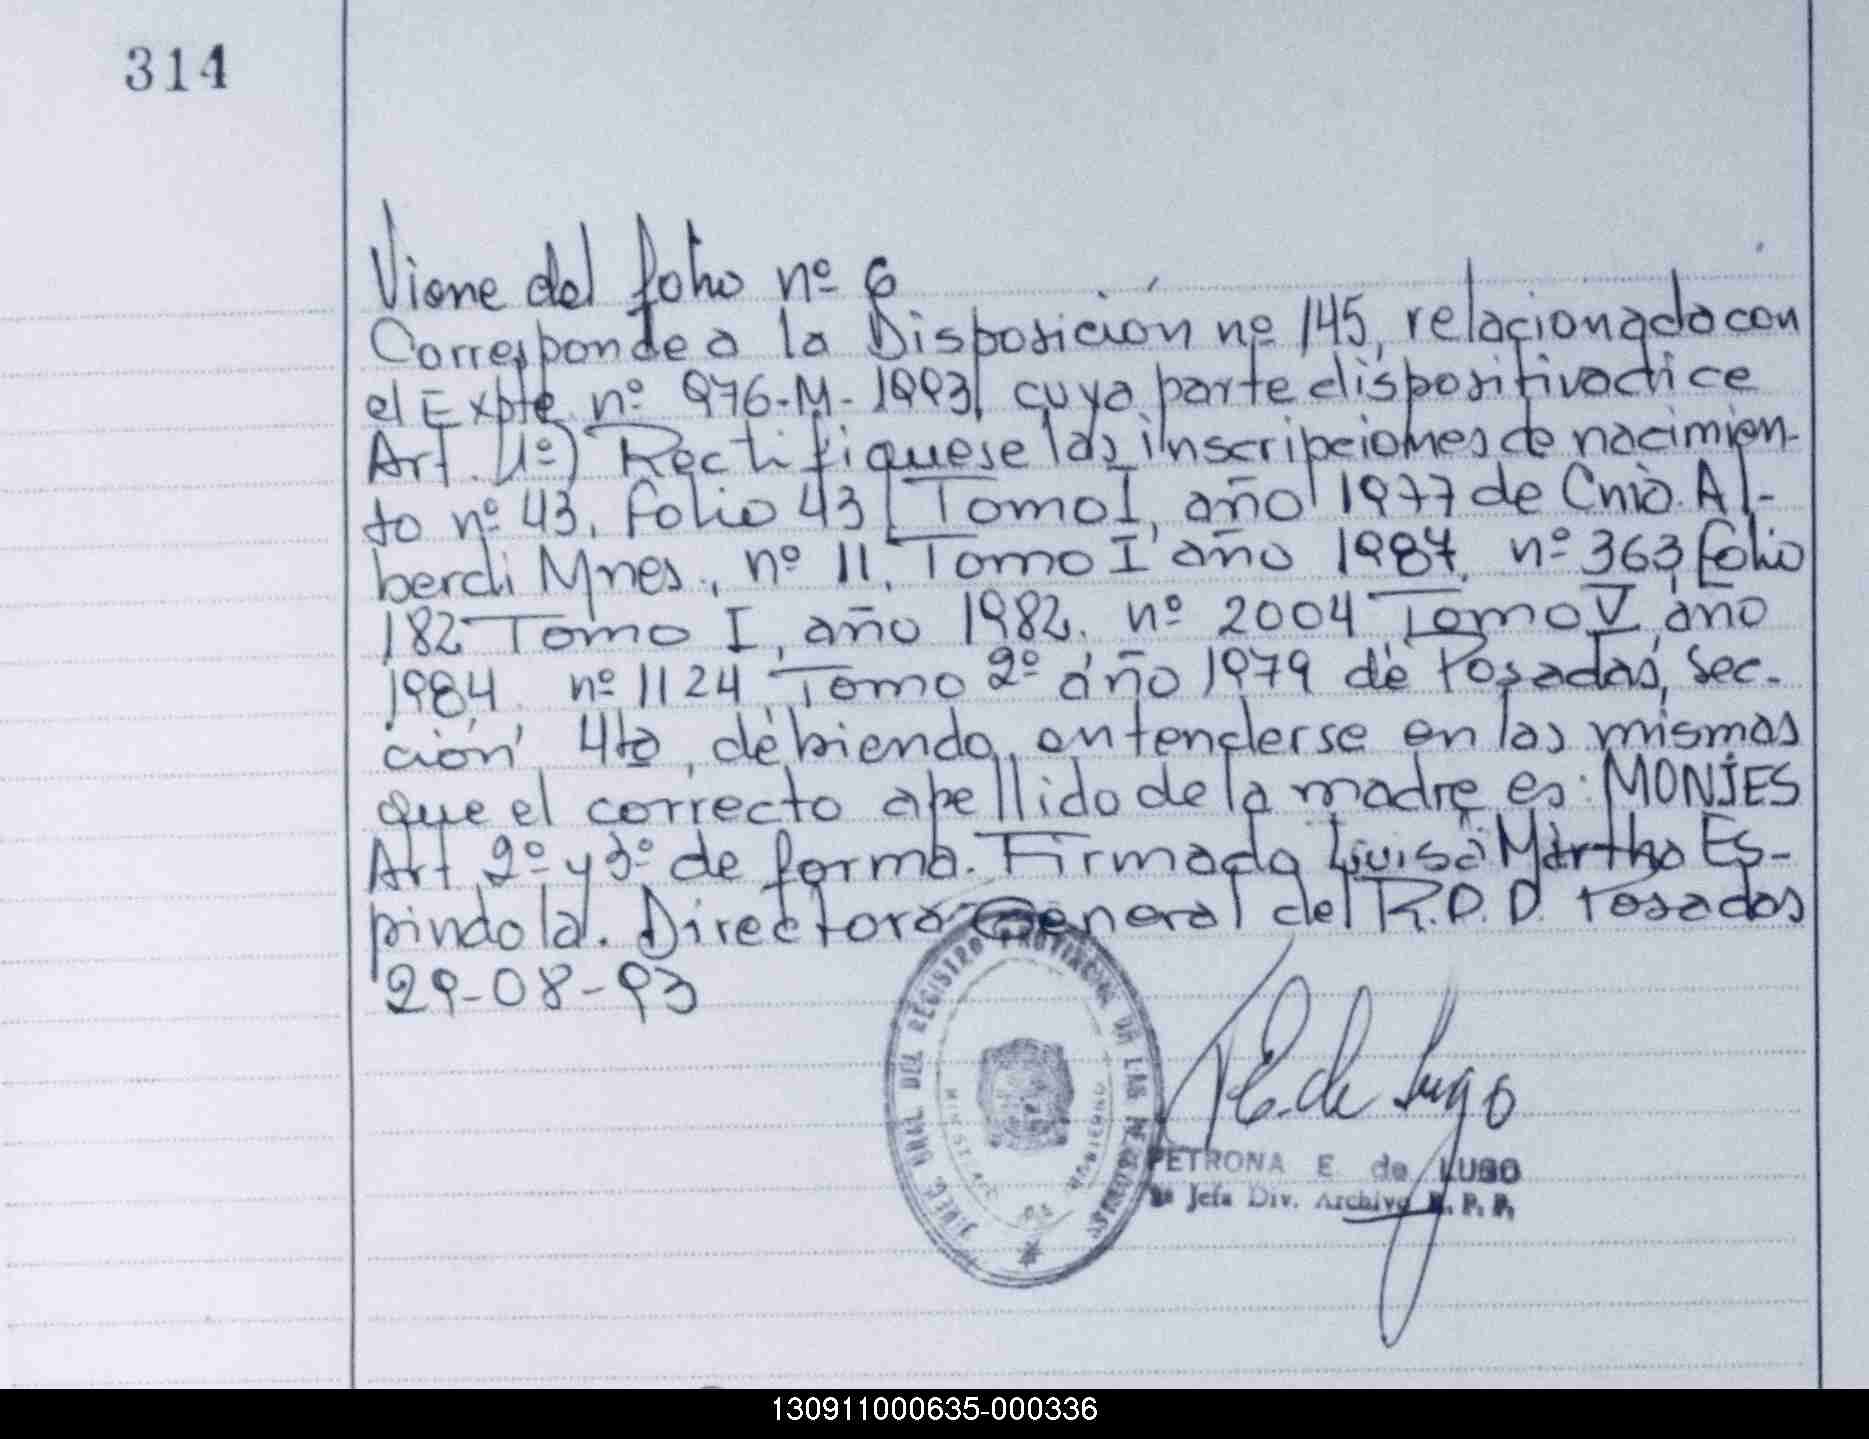 314
Viene del folio nº 6
Corresponde a la Disposición nº 145, relacionada con
el Expte. nº 976-M-1993, cuya parte dispositiva dice
Art. 1º) Rectifiquese las inscripciones de nacimien-
to nº 43, folio 43, Tomo I, año 1977 de Cnia. Al-
berdi Mnes., nº 11, Tomo I año 1987, nº 363, folio
182 Tomo I, año 1982. nº 2004 Tomo V, año
1984, nº 1124, Tomo 2º año 1979 de Posadas, Sec-
ción 4ta, debiendo entenderse en las mismas
que el correcto apellido de la madre es: MONJES
Art. 2º y 3º de forma. Firmado Luisa Martha Es-
pindola. Directora General del R.P.P. Posadas
29-08-93
DIREC. GRAL DEL REGISTRO PROVINCIAL DE LAS PERSONAS
MINISTERIO DE GOBIERNO
P.E. de Lugo
PETRONA E. de LUGO
Jefa Div. Archivo R.P.P.
130911000635-000336